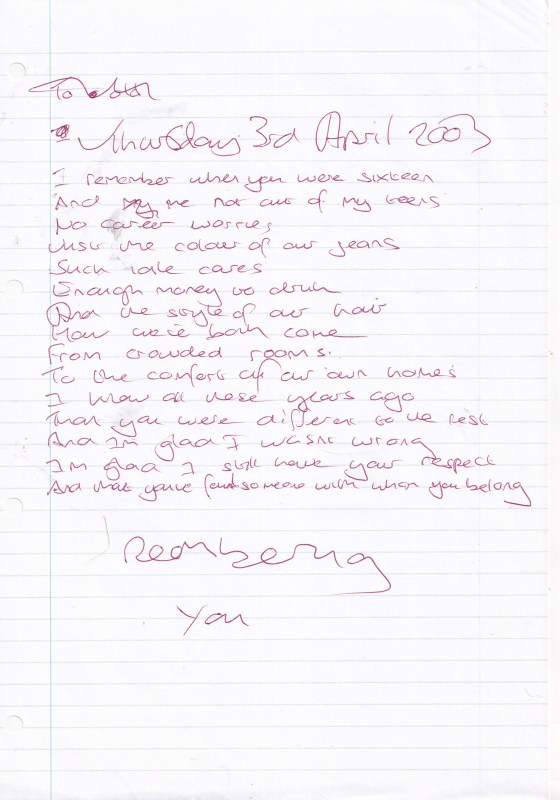 To
Thursday 3rd April 2003
I remember when you were sixteen
And me not out of my teens
No career worries
Just the colour of our jeans
Such idle cares
Enough money to drink
And the style of our hair
How we've both come
From crowded rooms.
To the comfort of our own homes
I knew all these years ago
That you were different to the rest
And I'm glad I wasnt wrong
I'm glad I still have your respect
And that you've found someone with whom you belong
You